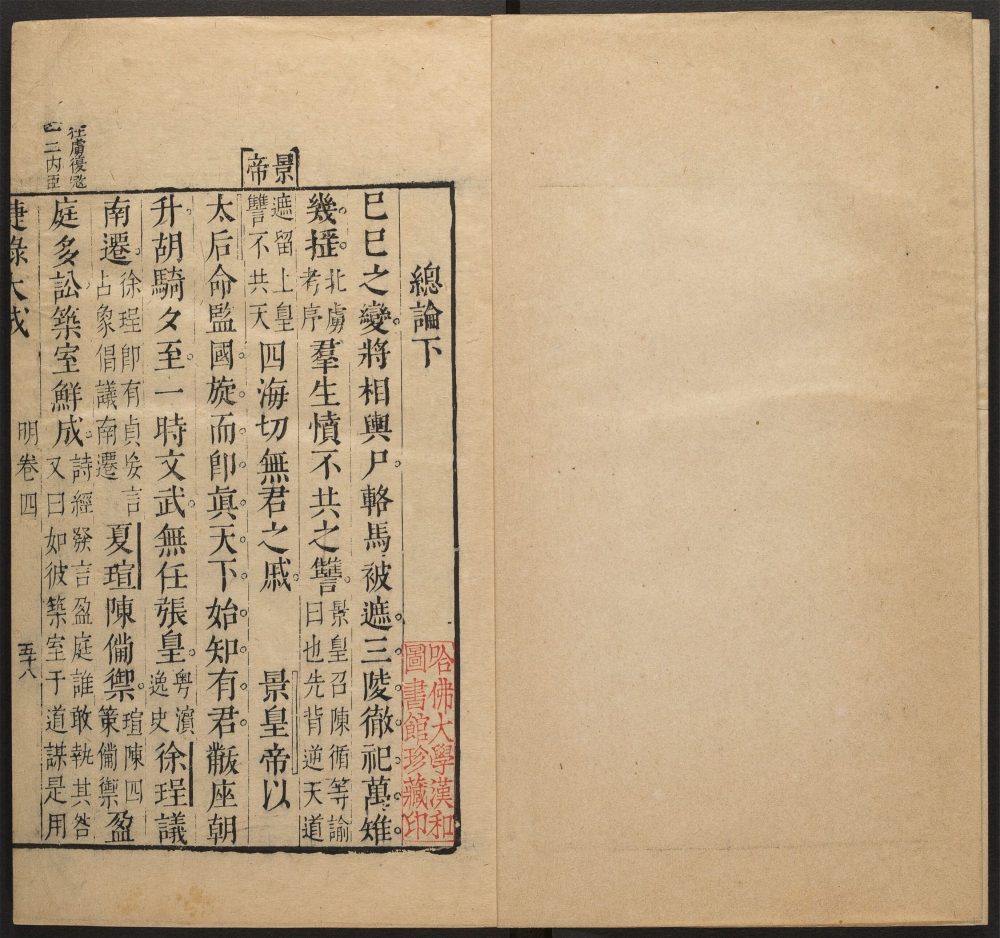 總論下
巳巳之變將相輿尸輅馬被遮三陵徹祀萬雉
幾摧北虜考序羣生憤不共之讐景皇召陳循等諭曰也先背逆天道
遮留上皇讐不共天四海切無君之戚 景皇帝以
太后命監國旋而即眞天下始知有君黻座朝
升胡騎夕至一時文武無任張皇粵濱逸史徐珵議
南遷徐珵即有貞妄言占象倡議南遷夏瑄陳備禦瑄陳四策備禦盈
庭多訟築室鮮成詩經發言盈庭誰敢執其咎又曰如彼築室于道謀是用
捷錄大成
明卷四
五十八
景帝
二內臣
哈佛大學漢和圖書館珍藏印